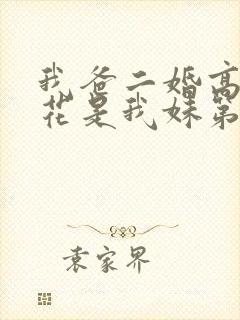 我爸二婚高
花是我妹第
袁家界